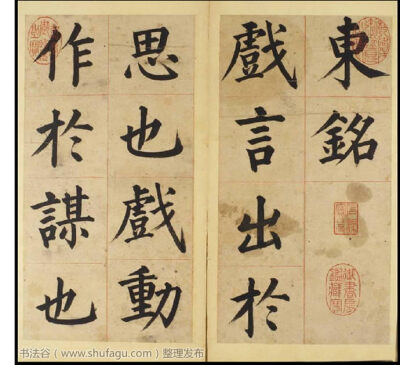 東銘
戲言出於
思也戲動
作於謀也
书法谷（www.shufagu.com）整理发布